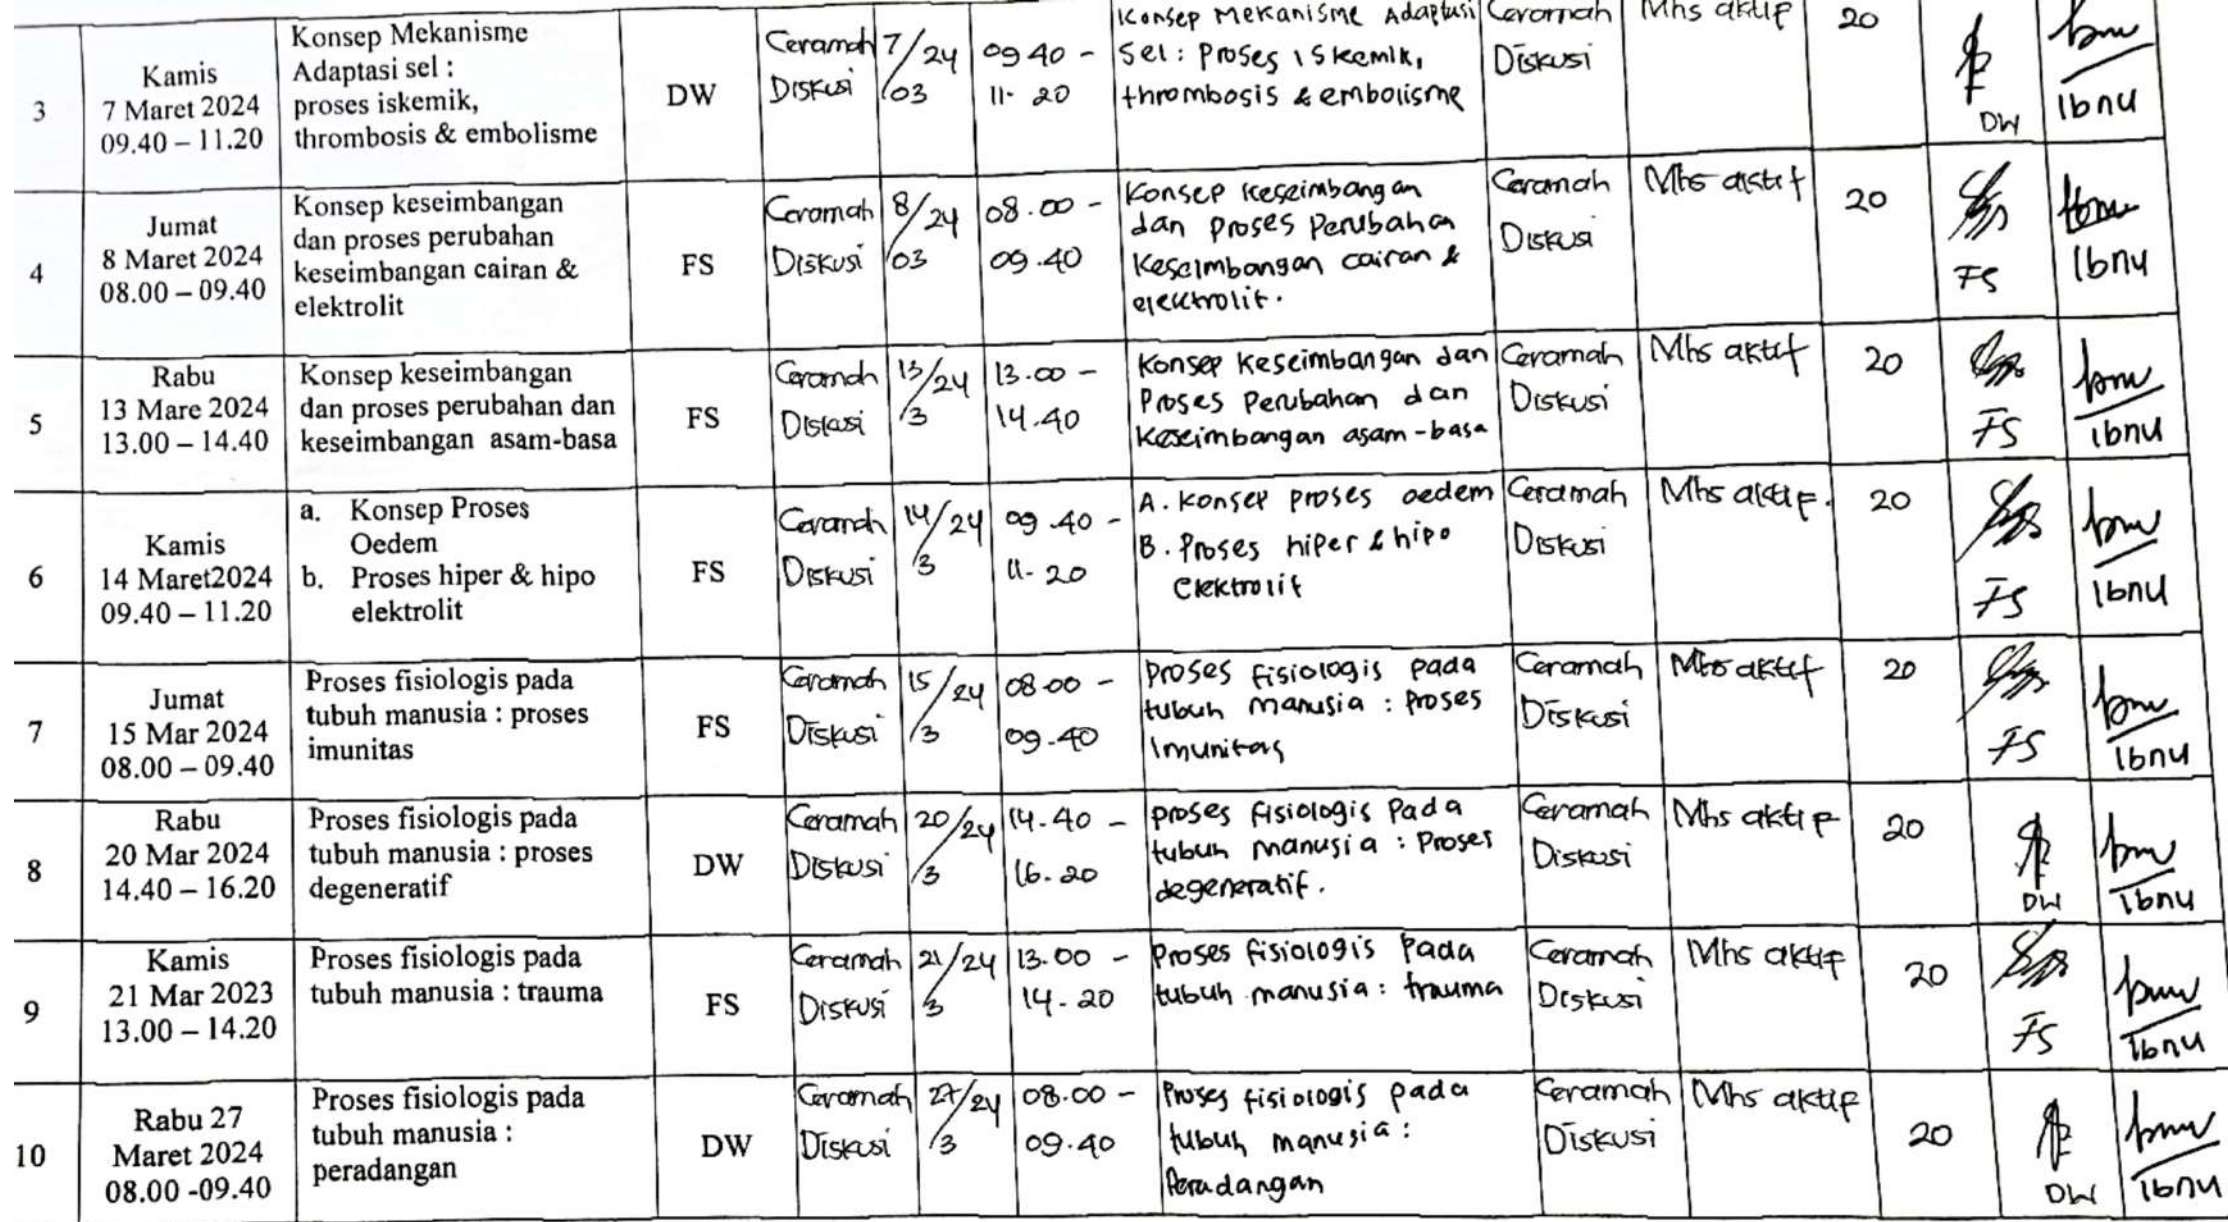 3
Kamis
7 Maret 2024
09.40 – 11.20
Konsep Mekanisme
Adaptasi sel :
proses iskemik,
thrombosis & embolisme
DW
Ceramah
Diskusi
7/24
/03
09.40 -
11.20
Konsep Mekanisme Adaptasi
Sel : Proses iskemik,
thrombosis & embolisme
Ceramah
Diskusi
Mhs aktif
20
DW
Ibnu
4
Jumat
8 Maret 2024
08.00 – 09.40
Konsep keseimbangan
dan proses perubahan
keseimbangan cairan &
elektrolit
FS
Ceramah
Diskusi
8/24
/03
08.00 -
09.40
Konsep keseimbangan
dan proses perubahan
keseimbangan cairan &
elektrolit.
Ceramah
Diskusi
Mhs aktif
20
FS
Ibnu
5
Rabu
13 Mare 2024
13.00 – 14.40
Konsep keseimbangan
dan proses perubahan dan
keseimbangan asam-basa
FS
Ceramah
Diskusi
13/24
/3
13.00 -
14.40
Konsep keseimbangan dan
Proses Perubahan dan
keseimbangan asam-basa
Ceramah
Diskusi
Mhs aktif
20
FS
Ibnu
6
Kamis
14 Maret2024
09.40 – 11.20
a. Konsep Proses
Oedem
b. Proses hiper & hipo
elektrolit
FS
Ceramah
Diskusi
14/24
/3
09.40 -
11.20
A. Konsep proses oedem
B. Proses hiper & hipo
Elektrolit
Ceramah
Diskusi
Mhs aktif.
20
FS
Ibnu
7
Jumat
15 Mar 2024
08.00 – 09.40
Proses fisiologis pada
tubuh manusia : proses
imunitas
FS
Ceramah
Diskusi
15/24
/3
08.00 -
09.40
Proses fisiologis pada
tubuh manusia : Proses
Imunitas
Ceramah
Diskusi
Mhs aktif
20
FS
Ibnu
8
Rabu
20 Mar 2024
14.40 – 16.20
Proses fisiologis pada
tubuh manusia : proses
degeneratif
DW
Ceramah
Diskusi
20/24
/3
14.40 -
16.20
Proses fisiologis Pada
tubuh manusia : Proses
degeneratif.
Ceramah
Diskusi
Mhs aktif
20
DW
Ibnu
9
Kamis
21 Mar 2023
13.00 – 14.20
Proses fisiologis pada
tubuh manusia : trauma
FS
Ceramah
Diskusi
21/24
/3
13.00 -
14.20
Proses fisiologis Pada
tubuh manusia : trauma
Ceramah
Diskusi
Mhs aktif
20
FS
Ibnu
10
Rabu 27
Maret 2024
08.00 -09.40
Proses fisiologis pada
tubuh manusia :
peradangan
DW
Ceramah
Diskusi
27/24
/3
08.00 -
09.40
Proses fisiologis pada
tubuh manusia :
Peradangan
Ceramah
Diskusi
Mhs aktif
20
DW
Ibnu